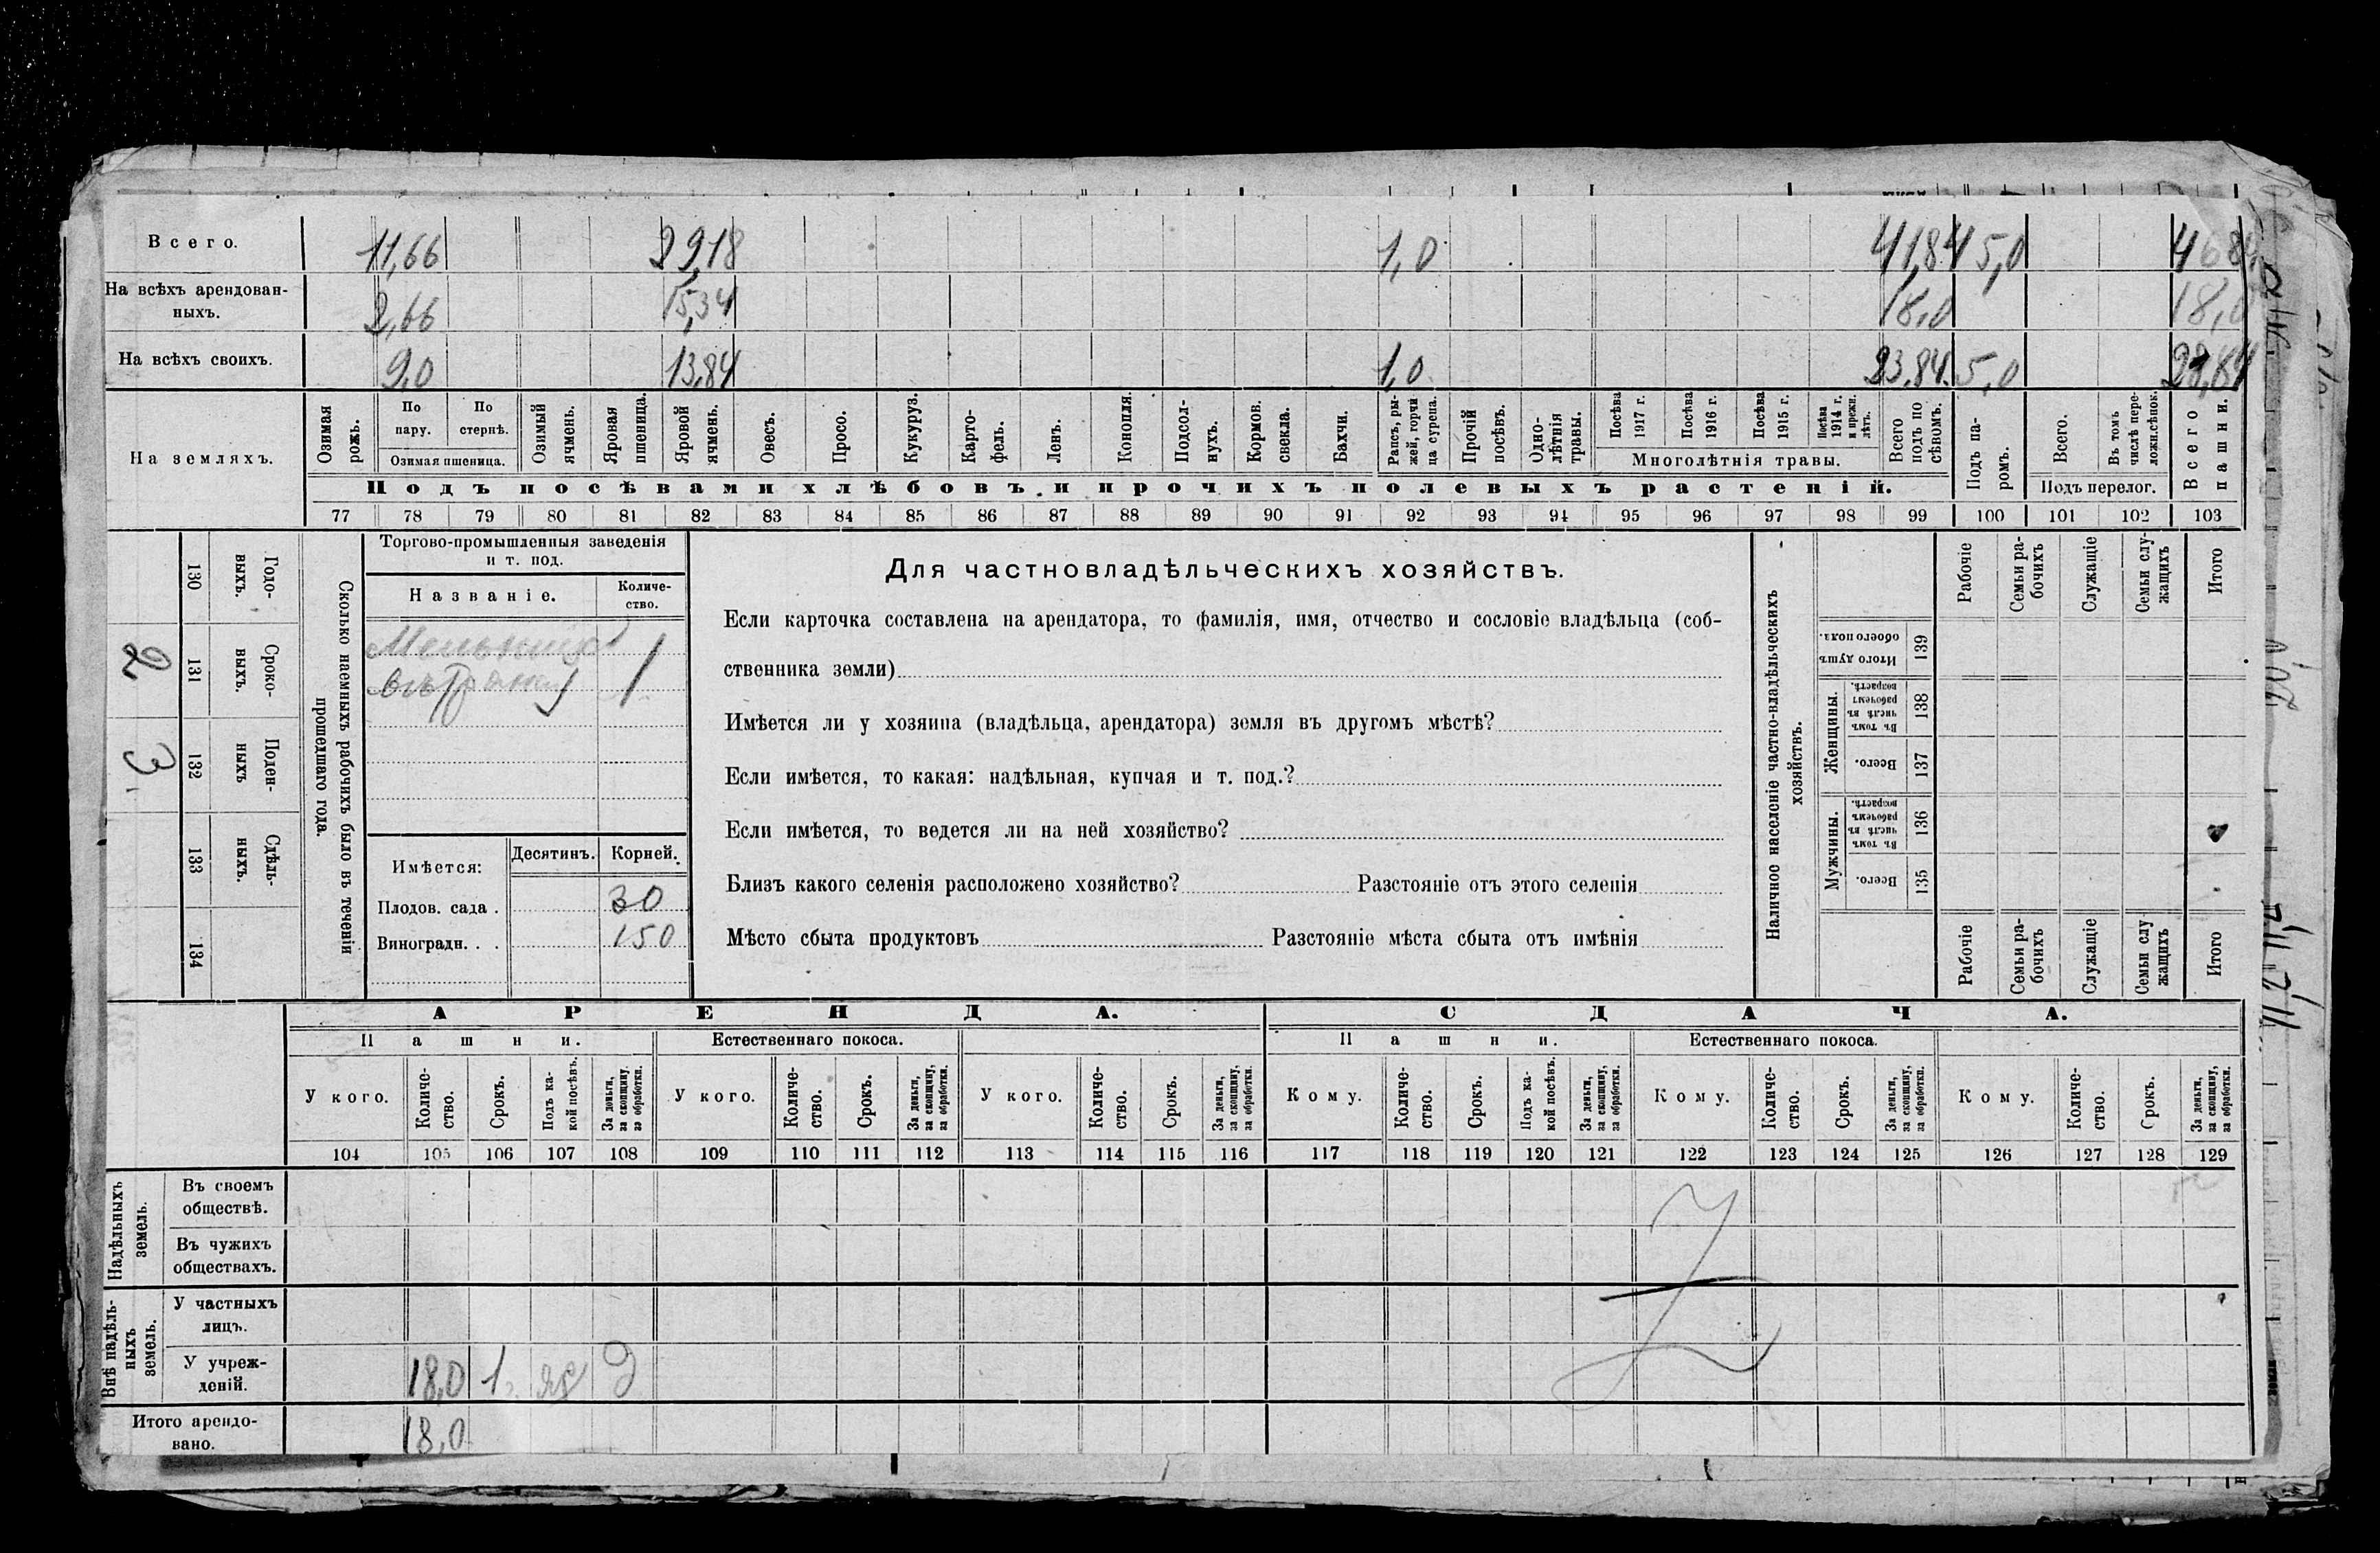 Всего. 11,66 29,18 1,0 41,84 5,0
На всѣхъ арендован-
ныхъ. 2,66 15,34 18,0 18,0
На всѣхъ своихъ. 9,0 13,84 1,0 23,84 5,0 28,84
На земляхъ.
Озимая рожь.
По пару.
По стернѣ.
Озимая пшеница.
Озимый ячмень.
Яровая пшеница.
Яровой ячмень.
Овесъ.
Просо.
Кукуруз.
Карто-
фель.
Ленъ.
Конопля.
Подсол-
нухъ.
Кормов. свекла.
Бахчи.
Рапсъ, ры-
жей, горчи
ца сурепа.
Прочій посѣвъ.
Одно-
лѣтнія травы.
Посѣва 1917 г.
Посѣва 1916 г.
Посѣва 1915 г.
Посѣва 1914 г. и прежн. лѣтъ.
Многолѣтнія травы.
Всего подъ по
сѣвомъ.
Подъ па-
ромъ.
Всего.
Въ томъ числѣ пере-
ложн.сѣнок.
Подъ перелог.
Всего пашни.
Подъ посѣвами хлѣбовъ и прочихъ полевыхъ растеній.
77 78 79 80 81 82 83 84 85 86 87 88 89 90 91 92 93 94 95 96 97 98 99 100 101 102 103
Сколько наемныхъ рабочихъ было въ теченіи
прошедшаго года.
Годо-
выхъ.
130
Сроко-
выхъ.
131
2
Поден-
ныхъ
132
3
Сдѣль-
ныхъ.
133
134
Торгово-промышленныя заведенія
и т. под.
Названіе.
Количе-
ство.
1
Имѣется: Десятинъ. Корней.
Плодов. сада . 30
Виноградн. . . 150
Для частновладѣльческихъ хозяйствъ.
Если карточка составлена на арендатора, то фамилія, имя, отчество и сословіе владѣльца (соб-
ственника земли)
Имѣется ли у хозяина (владѣльца, арендатора) земля въ другомъ мѣстѣ?
Если имѣется, то какая: надѣльная, купчая и т. под.?
Если имѣется, то ведется ли на ней хозяйство?
Близъ какого селенія расположено хозяйство? Разстояніе отъ этого селенія
Мѣсто сбыта продуктовъ Разстояніе мѣста сбыта отъ имѣнія
Наличное населеніе частно-владѣльческихъ
хозяйствъ.
Рабочіе
Семьи ра-
бочихъ
Служащіе
Семьи слу-
жащихъ
Итого
Итого душъ обоего пола. 139
Женщины.
Въ томъ числѣ въ рабочемъ возрастѣ. 138
Всего. 137
Мужчины.
Въ томъ числѣ въ рабочемъ возрастѣ. 136
Всего. 135
Рабочіе
Семьи ра-
бочихъ
Служащіе
Семьи слу
жащихъ
Итого
АРЕНДА. СДАЧА.
Пашни. Естественнаго покоса. Пашни. Естественнаго покоса.
У кого.
Количе-
ство.
Срокъ.
Подъ ка-
кой посѣвъ.
За деньги,
за скопщину,
за обработки.
У кого.
Количе-
ство.
Срокъ.
За деньги,
за скопщину,
за обработки.
У кого.
Количе-
ство.
Срокъ.
За деньги,
за скопщину,
за обработки.
Кому.
Количе-
ство.
Срокъ.
Подъ ка-
кой посѣвъ.
За деньги,
за скопщину,
за обработки.
Кому.
Количе-
ство.
Срокъ.
За деньги,
за скопщину,
за обработки.
Кому.
Количе-
ство.
Срокъ.
За деньги,
за скопщину,
за обработки.
104 105 106 107 108 109 110 111 112 113 114 115 116 117 118 119 120 121 122 123 124 125 126 127 128 129
Надѣльныхъ
земель.
Въ своемъ
обществѣ.
Въ чужихъ
обществахъ.
Внѣ надѣль-
ныхъ
земель.
У частныхъ
лицъ.
У учреж-
деній. 18,0 1
Итого арендо-
вано. 18,0